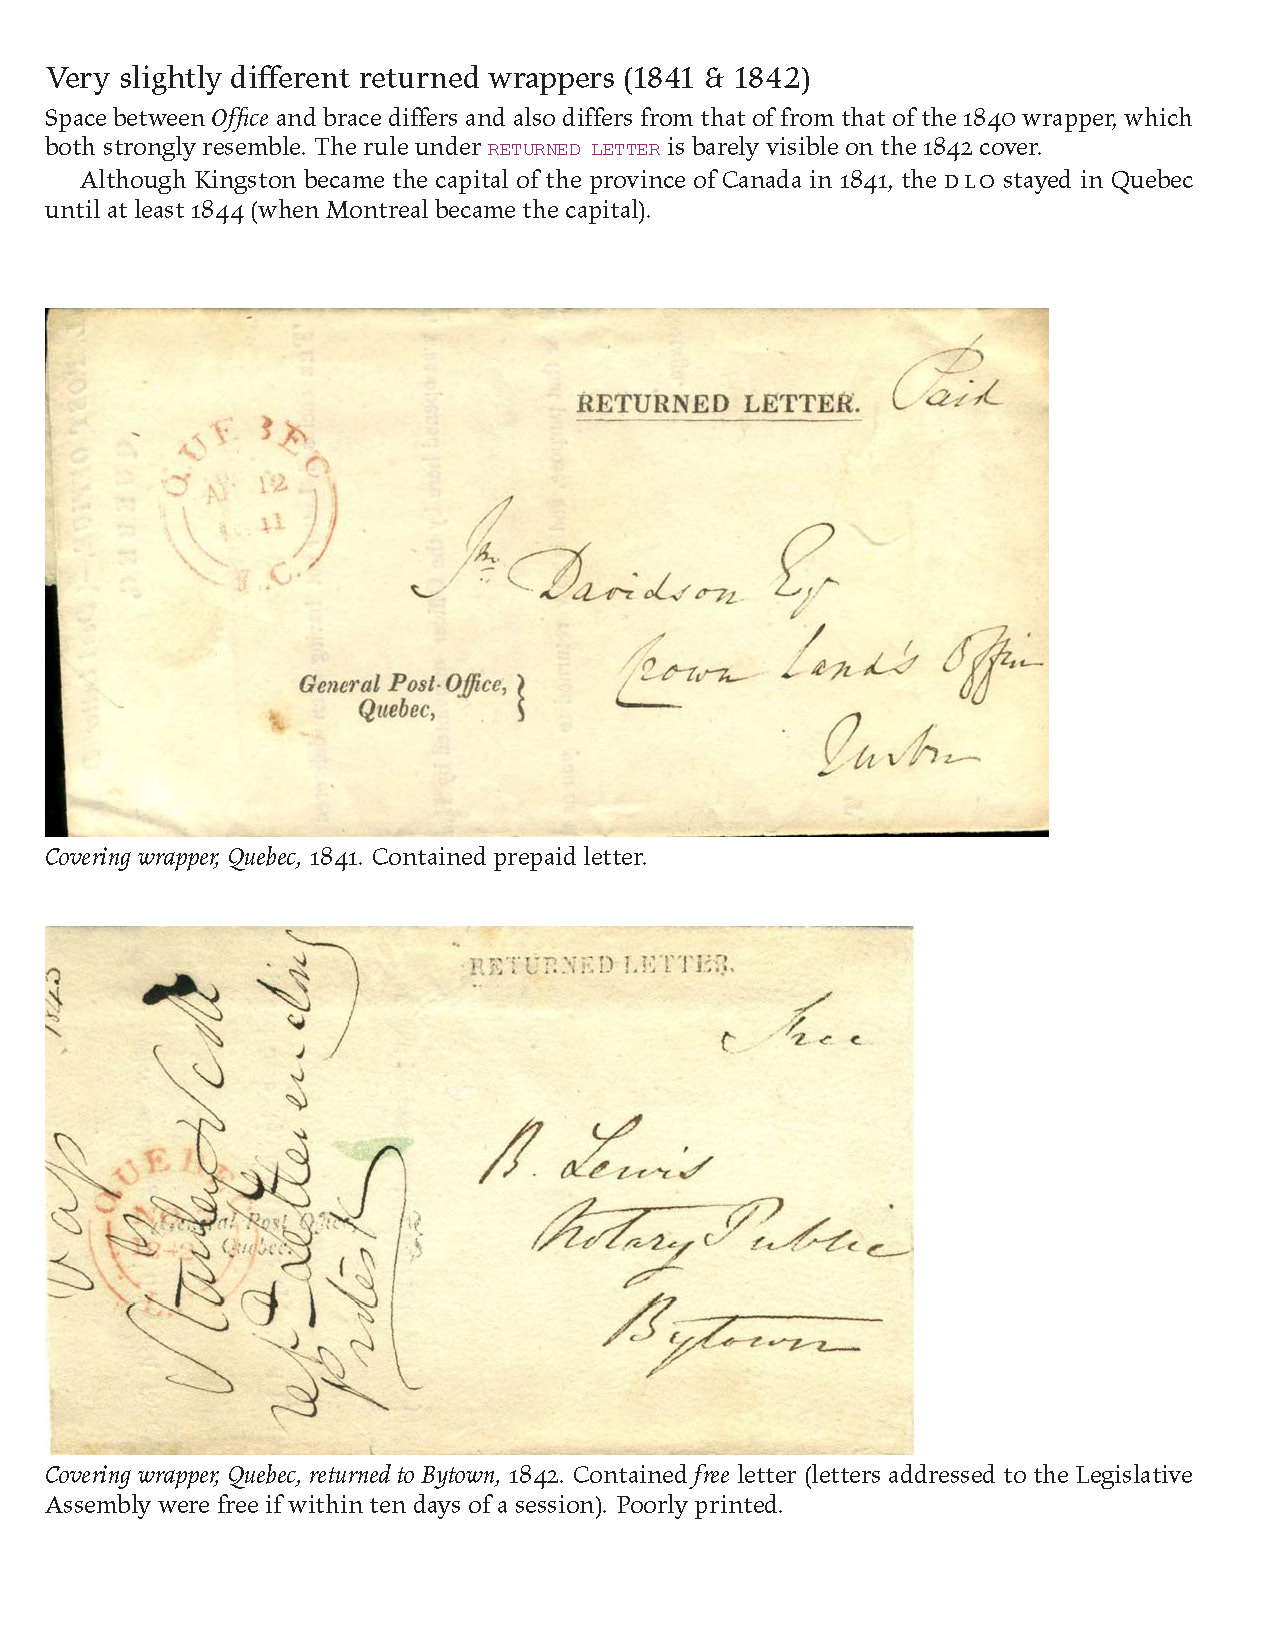 Very slightly different returned wrappers (1841 & 1842)
Space between Office and brace differs and also differs from that of from that of the 1840 wrapper, which
both strongly resemble. The rule under RETURNED LETTER is barely visible on the 1842 cover.
Although Kingston became the capital of the province of Canada in 1841, the DLO stayed in Quebec
until at least 1844 (when Montreal became the capital).
RETURNED LETTER.
Paid
QUEBEC
12
41
Davidson Esq
Crown Land's Office
General Post-Office,
Quebec,
Covering wrapper, Quebec, 1841. Contained prepaid letter.
RETURNED LETTER.
Free
1843
B. Lewis
Notary Public
Bytown
QUEBEC
1842
General Post Office,
Quebec.
Covering wrapper, Quebec, returned to Bytown, 1842. Contained free letter (letters addressed to the Legislative
Assembly were free if within ten days of a session). Poorly printed.